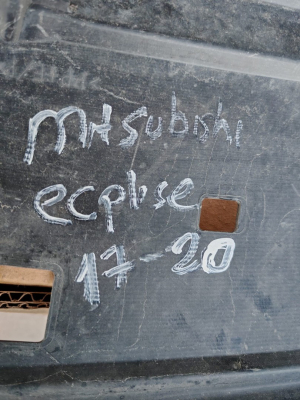 Mitsubishi
ecplise
17-20